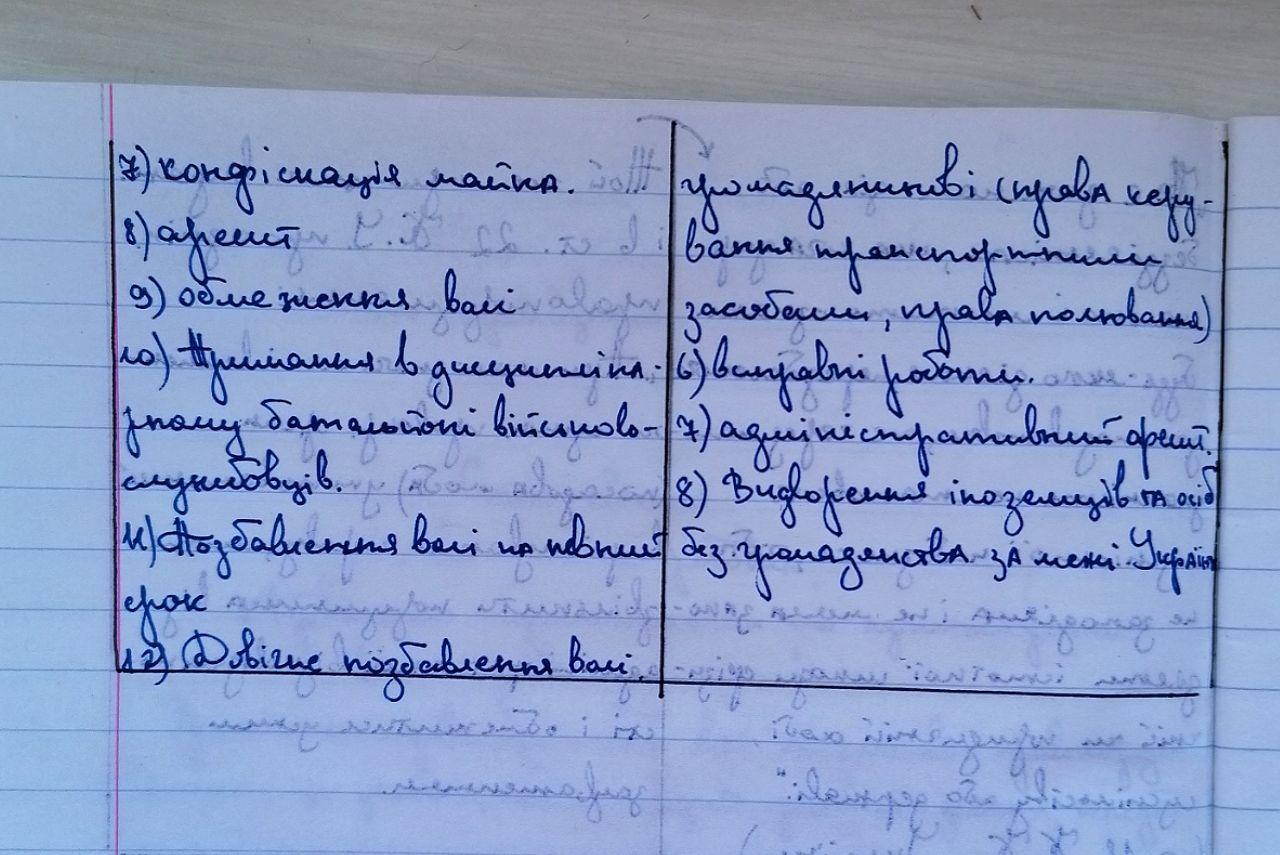 7) конфіскація майна.
8) арешт
9) обмеження волі
10) Тримання в дисципліна-
рному батальйоні військово-
службовців.
11) Позбавлення волі на певний
срок
12) Довічне позбавлення волі.
громадянинові (права керу-
вання транспортними
засобами, права полювання)
6) виправні роботи.
7) адміністративний арешт.
8) Видворення іноземців та осіб
без громадянства за межі України